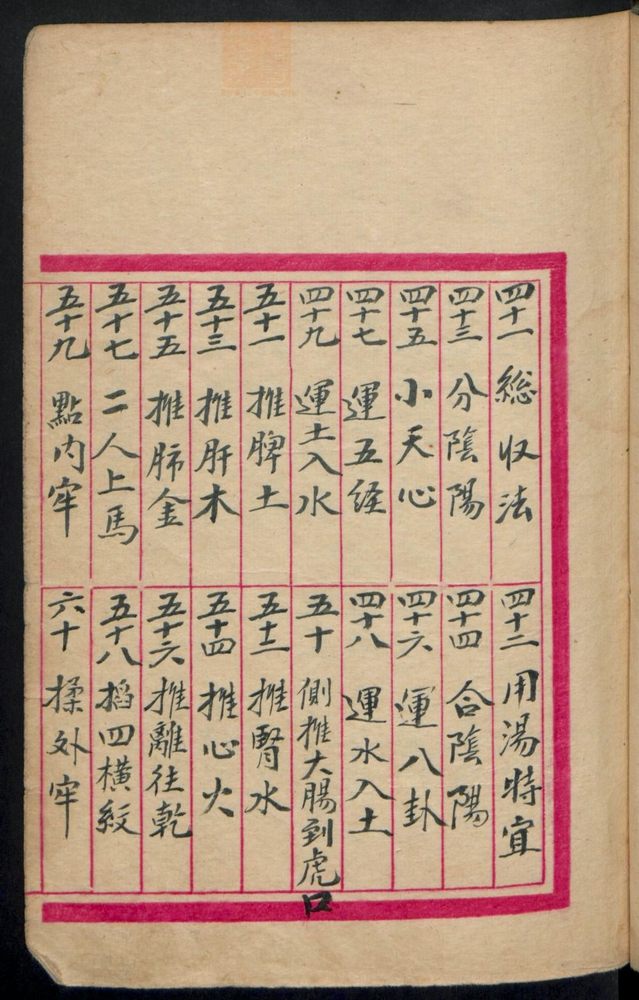 四十一 総收法
四十二 用湯時宜
四十三 分陰陽
四十四 合陰陽
四十五 小天心
四十六 運八卦
四十七 運五経
四十八 運水入土
四十九 運土入水
五十 側推大腸到虎口
五十一 推脾土
五十二 推腎水
五十三 推肝木
五十四 推心火
五十五 推肺金
五十六 推離往乾
五十七 二人上馬
五十八 掐四橫紋
五十九 點內牢
六十 揉外牢